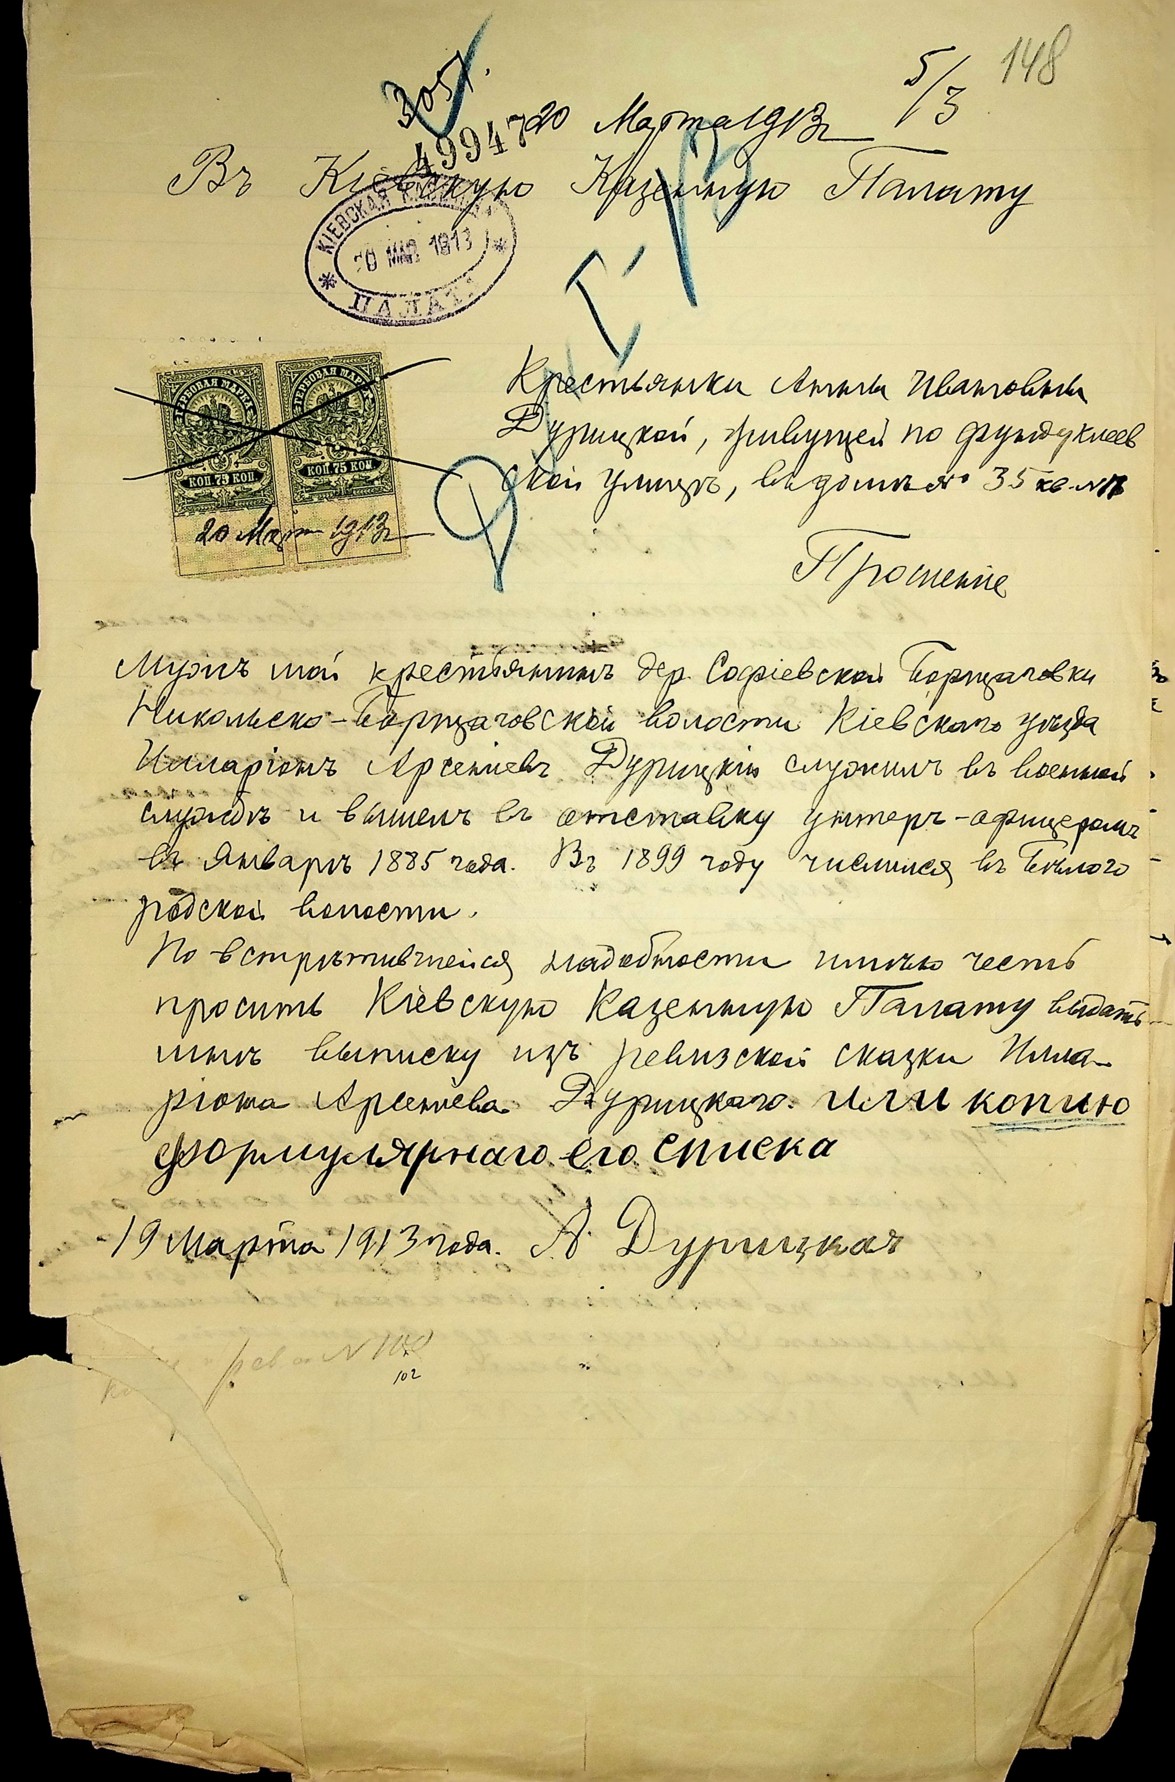 148
5/3
3051.
49947
20 Марта 1913 г.
Въ Кіевскую Казенную Палату
КІЕВСКАЯ КАЗЕННАЯ
20 МАР 1913
ПАЛАТА
ГЕРБОВАЯ МАРКА ГЕРБОВАЯ МАРКА
КОП. 75 КОП. КОП. 75 КОП.
20 Марта 1913 г.
Крестьянки Анны Ивановны
Дурицкой, живущей по Фундуклеев
ской улицѣ, въ домѣ № 35 кв. №
Прошеніе
Мужъ мой крестьянинъ дер. Софіевской Борщаговки
Никольско-Борщаговской волости Кіевскаго уѣзда
Илларіонъ Арсеніевъ Дурицкій служилъ въ военной
службѣ и вышелъ въ отставку унтеръ-офицеромъ
въ Январѣ 1885 года. Въ 1899 году числился въ Бѣлого
родской волости.
По встрѣтившейся надобности имѣю честь
просить Кіевскую Казенную Палату выдать
мнѣ выписку изъ ревизской сказки Илла-
ріона Арсеніева Дурицкаго. или копию
формулярнаго его списка
19 Марта 1913 года. А. Дурицкая
102